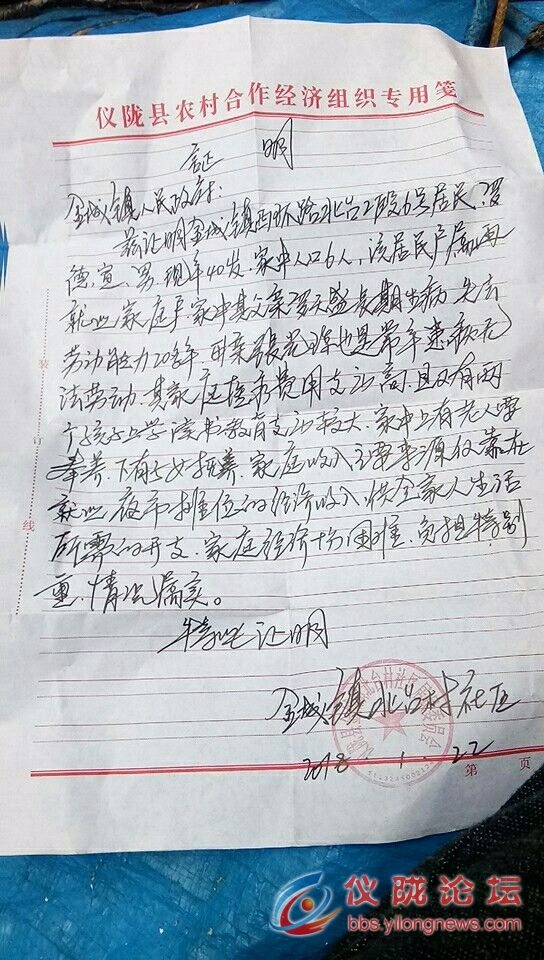 仪陇县农村合作经济组织专用笺
证 明
金城镇人民政府：
兹证明金城镇西环路北台2段6号居民罗
德宣、男、现年40岁、家中人口6人，该居民户属再
就业家庭户、家中其父亲罗天盛长期生病失去
劳动能力20多年、母亲张 也是常年患病无
法劳动、其家庭医疗费用支出高、且又有两
个孩子上学读书教育支出较大、家中上有老人要
奉养、下有子女抚养、家庭收入主要来源仅靠在
就业夜市摊位的经济收入供全家人生活
所需的开支、家庭经济十分困难、负担特别
重、情况属实。
特此证明
金城镇北台村社区
2018.1.22
第 页
装
订
线
仪陇论坛
bbs.yilongnews.com